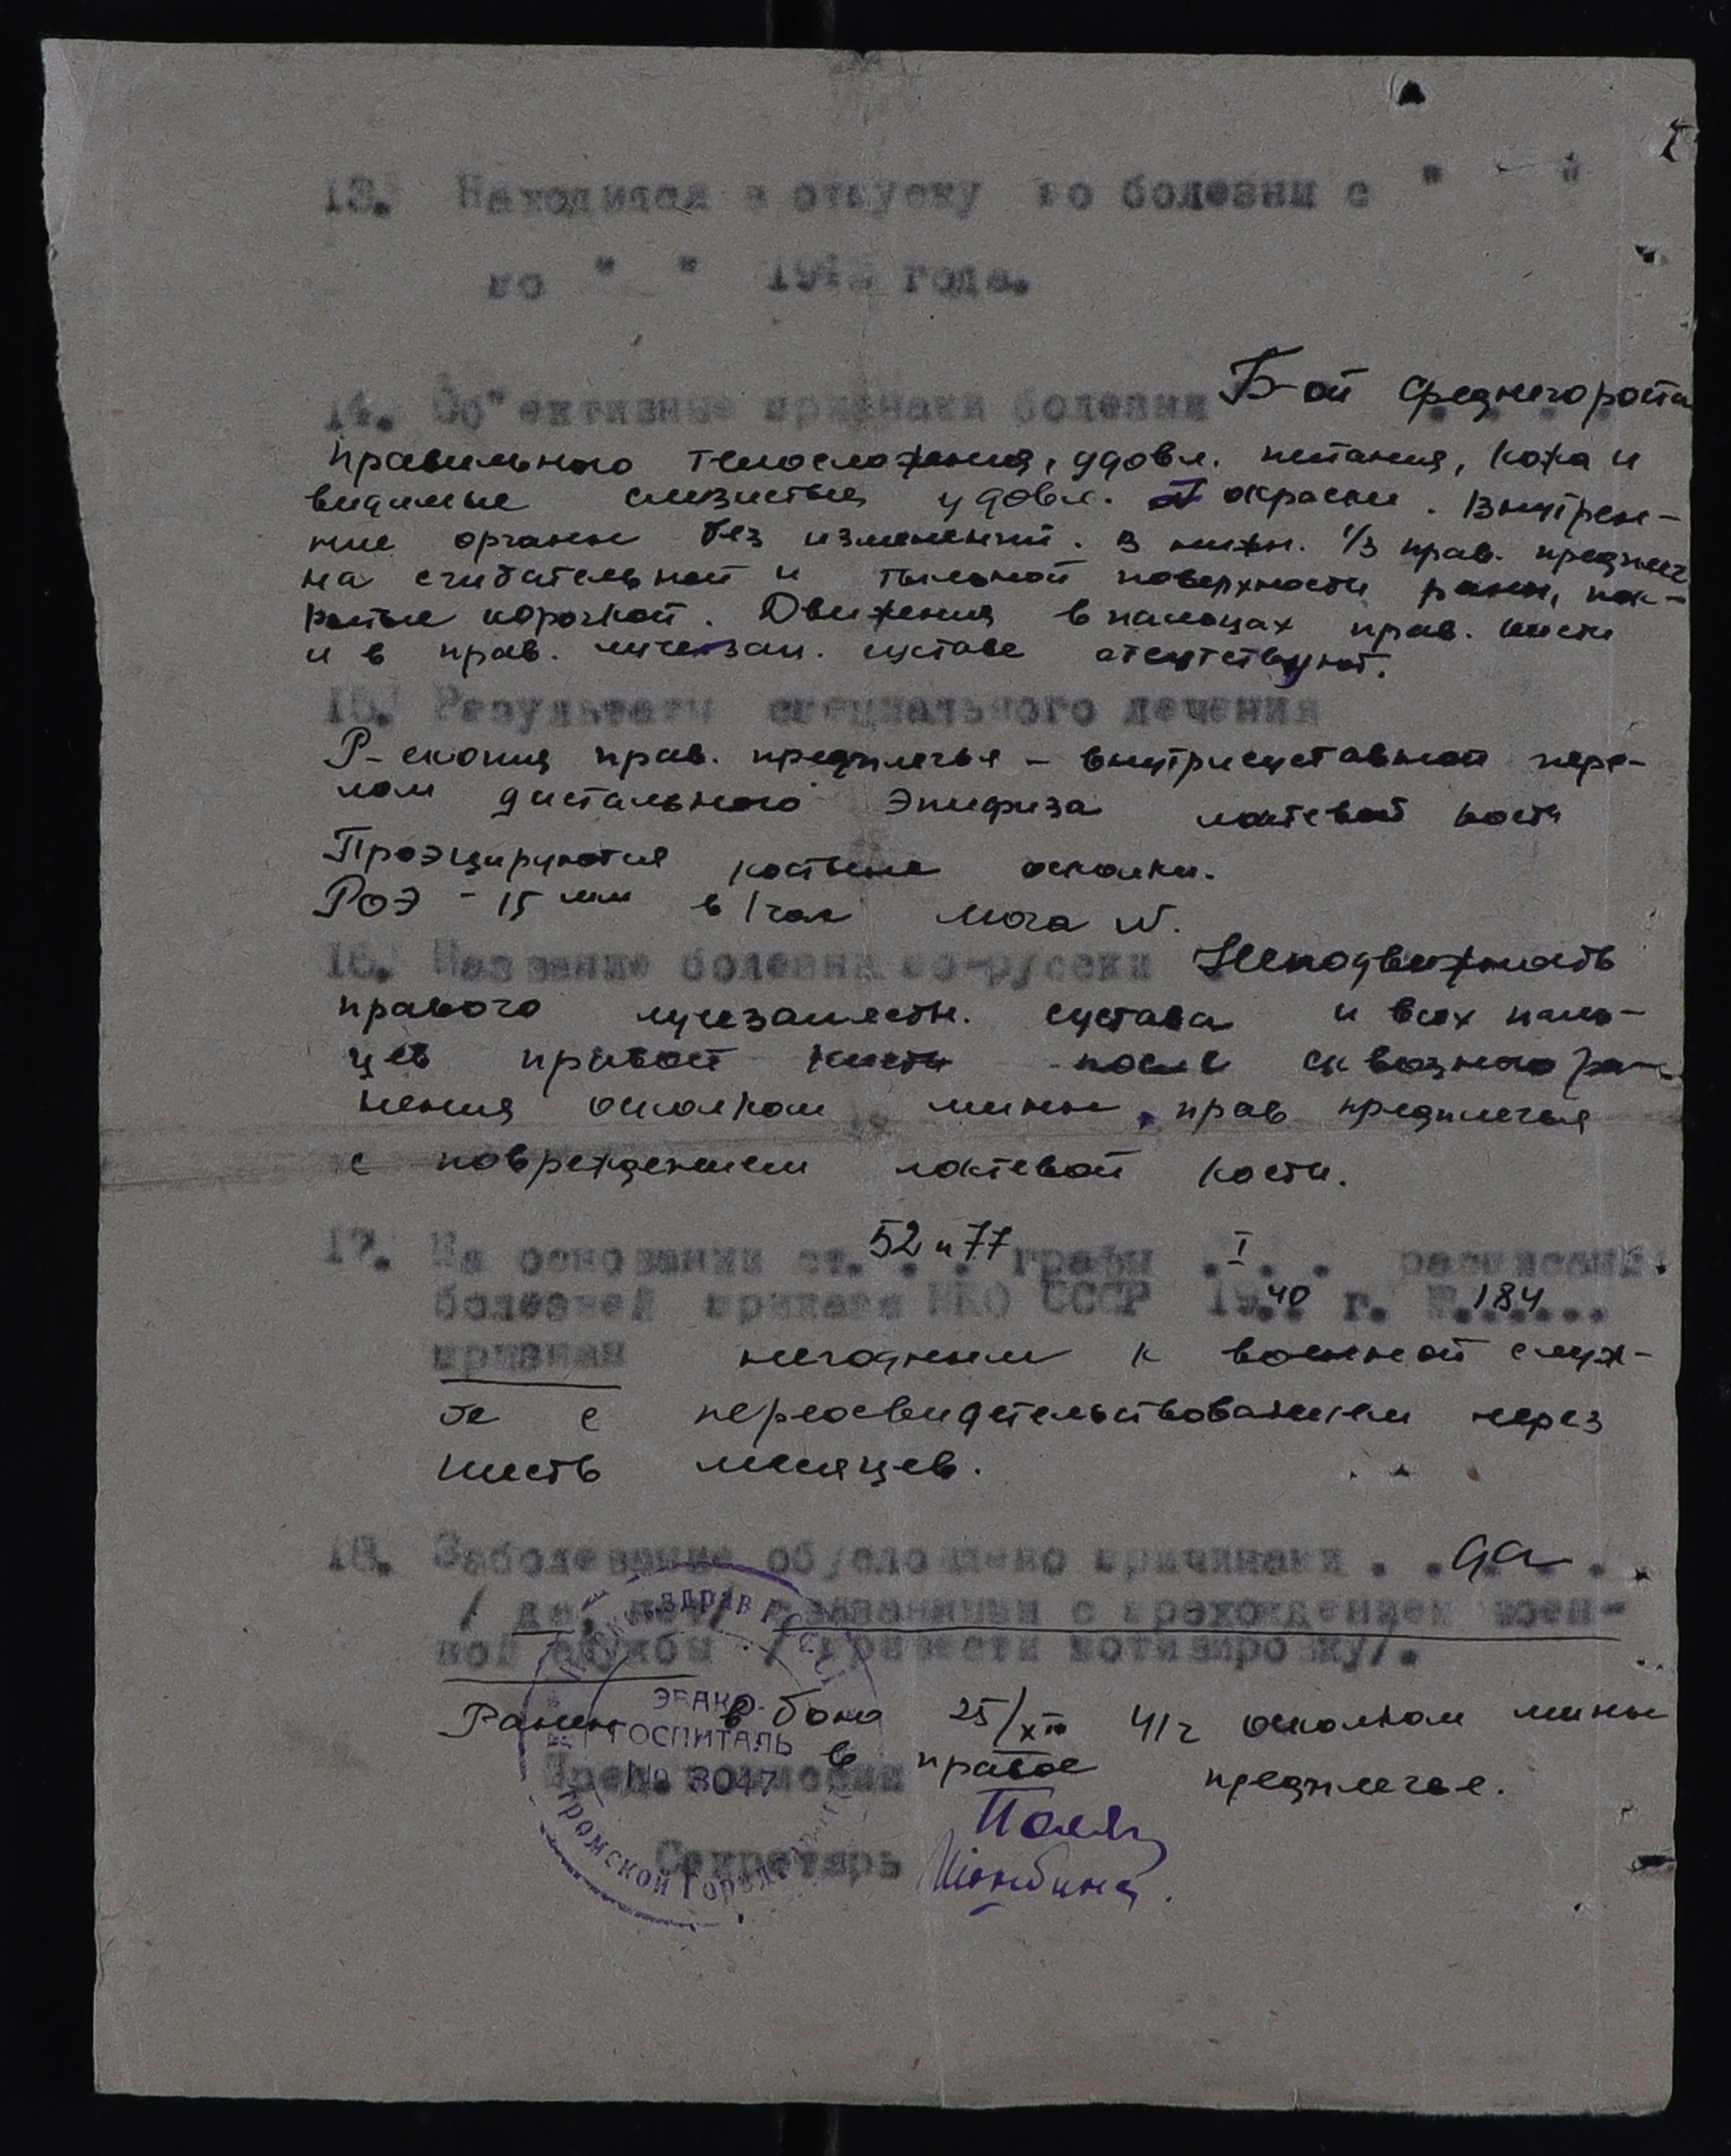 13. Находился в отпуску по болезни с " - "
по " " 194 года.
14. Об"ективные признаки болезни Б-ой среднего роста
правильного телосложения, удовл. питания, кожа и
видимые слизистые удовл. окраски. Внутрен-
ние органы без изменений. В нижн. 1/3 прав. предплеч
на сгибательной и тыльной поверхности раны, пок-
рытые корочкой. Движения в пальцах прав. кисти
и в прав. лучезап. суставе отсутствуют.
15. Результаты специального лечения
Р-скопия прав. предплечья - внутрисуставной пере-
лом дистального эпифиза локтевой кости
Проэцируются костные осколки.
РОЭ - 15 мм в 1 час Моча N.
16. Название болезни по-русски Неподвижность
правого лучезапястн. сустава и всех паль-
цев правой кисти после сквозного ра-
нения осколком мины прав предплечья
с повреждением локтевой кости.
17. На основании ст. 52 и 77 графы I расписания
болезней приказа НКО СССР 1940 г. №. 184
признан негодным к военной служ-
бе с переосвидетельствованием через
шесть месяцев.
18. Заболевание обусловлено причинами . . да . .
/ да, нет/ связанными с прохождением воен-
ной службы / привести мотивировку/.
Ранен в бою 25/XII 41г осколком мины
в правое предплечье.
Пред. комиссии
Секретарь
ЭВАКО-
ГОСПИТАЛЬ
№ 3047